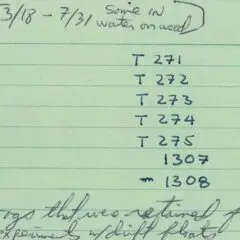 3/18 - 7/31 Some in
water on wood
T 271
T 272
T 273
T 274
T 275
1307
" 1308
that were retained
experiments w/ drift floats